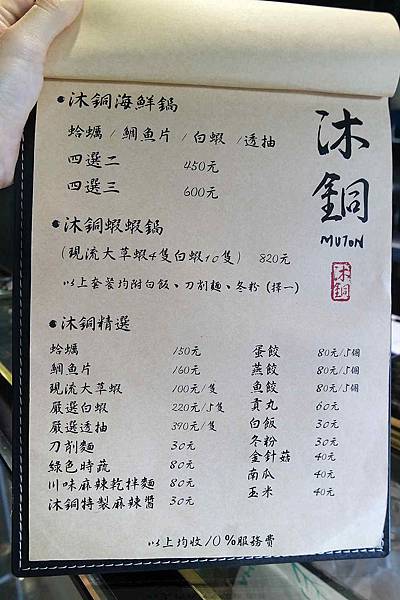 沐銅
MUTON
沐銅
•沐銅海鮮鍋
蛤蠣/鯛魚片/白蝦/透抽
四選二 450元
四選三 600元
•沐銅蝦蝦鍋
(現流大草蝦4隻白蝦10隻) 820元
以上套裝均附白飯、刀削麵、冬粉(擇一)
•沐銅精選
蛤蠣 150元
鯛魚片 160元
現流大草蝦 100元/隻
嚴選白蝦 220元/5隻
嚴選透抽 390元/隻
刀削麵 30元
綠色時蔬 80元
川味麻辣乾拌麵 80元
沐銅特製麻辣醬 30元
蛋餃 80元/5個
燕餃 80元/5個
魚餃 80元/5個
貢丸 60元
白飯 30元
冬粉 30元
金針菇 40元
南瓜 40元
玉米 40元
以上均收10%服務費